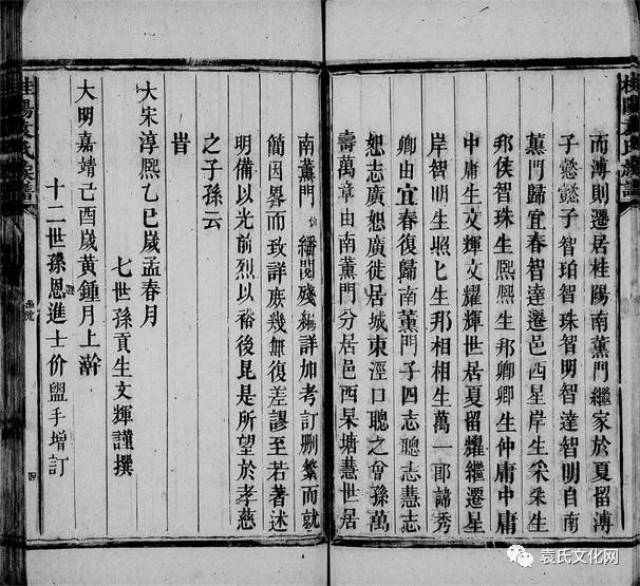 而溥則遷居桂陽南薰門繼家於夏留溥
子懿懿子智珀智珠智明智達智明自南
薰門歸宜春智達遷邑西星岸生采采生
邦俟智珠生熙熙生邦卿卿生仲庸中庸
中庸生文輝文耀輝世居夏留耀繼遷星
岸智明生照照生邦相相生萬一郎諦秀
卿由宜春復歸南薰門子四志聰志慧志
恕志廣恕廣徙居城東涇口聰之曾孫萬
壽萬章由南薰門分居邑西杲塘慧世居
南薰門 繙閱殘編詳加考訂删繁而就
簡因畧而致詳庻幾無復差謬至若著述
明備以光前烈以裕後昆是所望於孝慈
之子孫云
旹
大宋淳熙乙巳嵗孟春月
七世孫貢生文輝謹撰
大明嘉靖己酉嵗黃鍾月上澣
十二世孫恩進士价盥手增訂
桂陽袁氏族譜
桂陽袁氏族譜
袁氏文化网